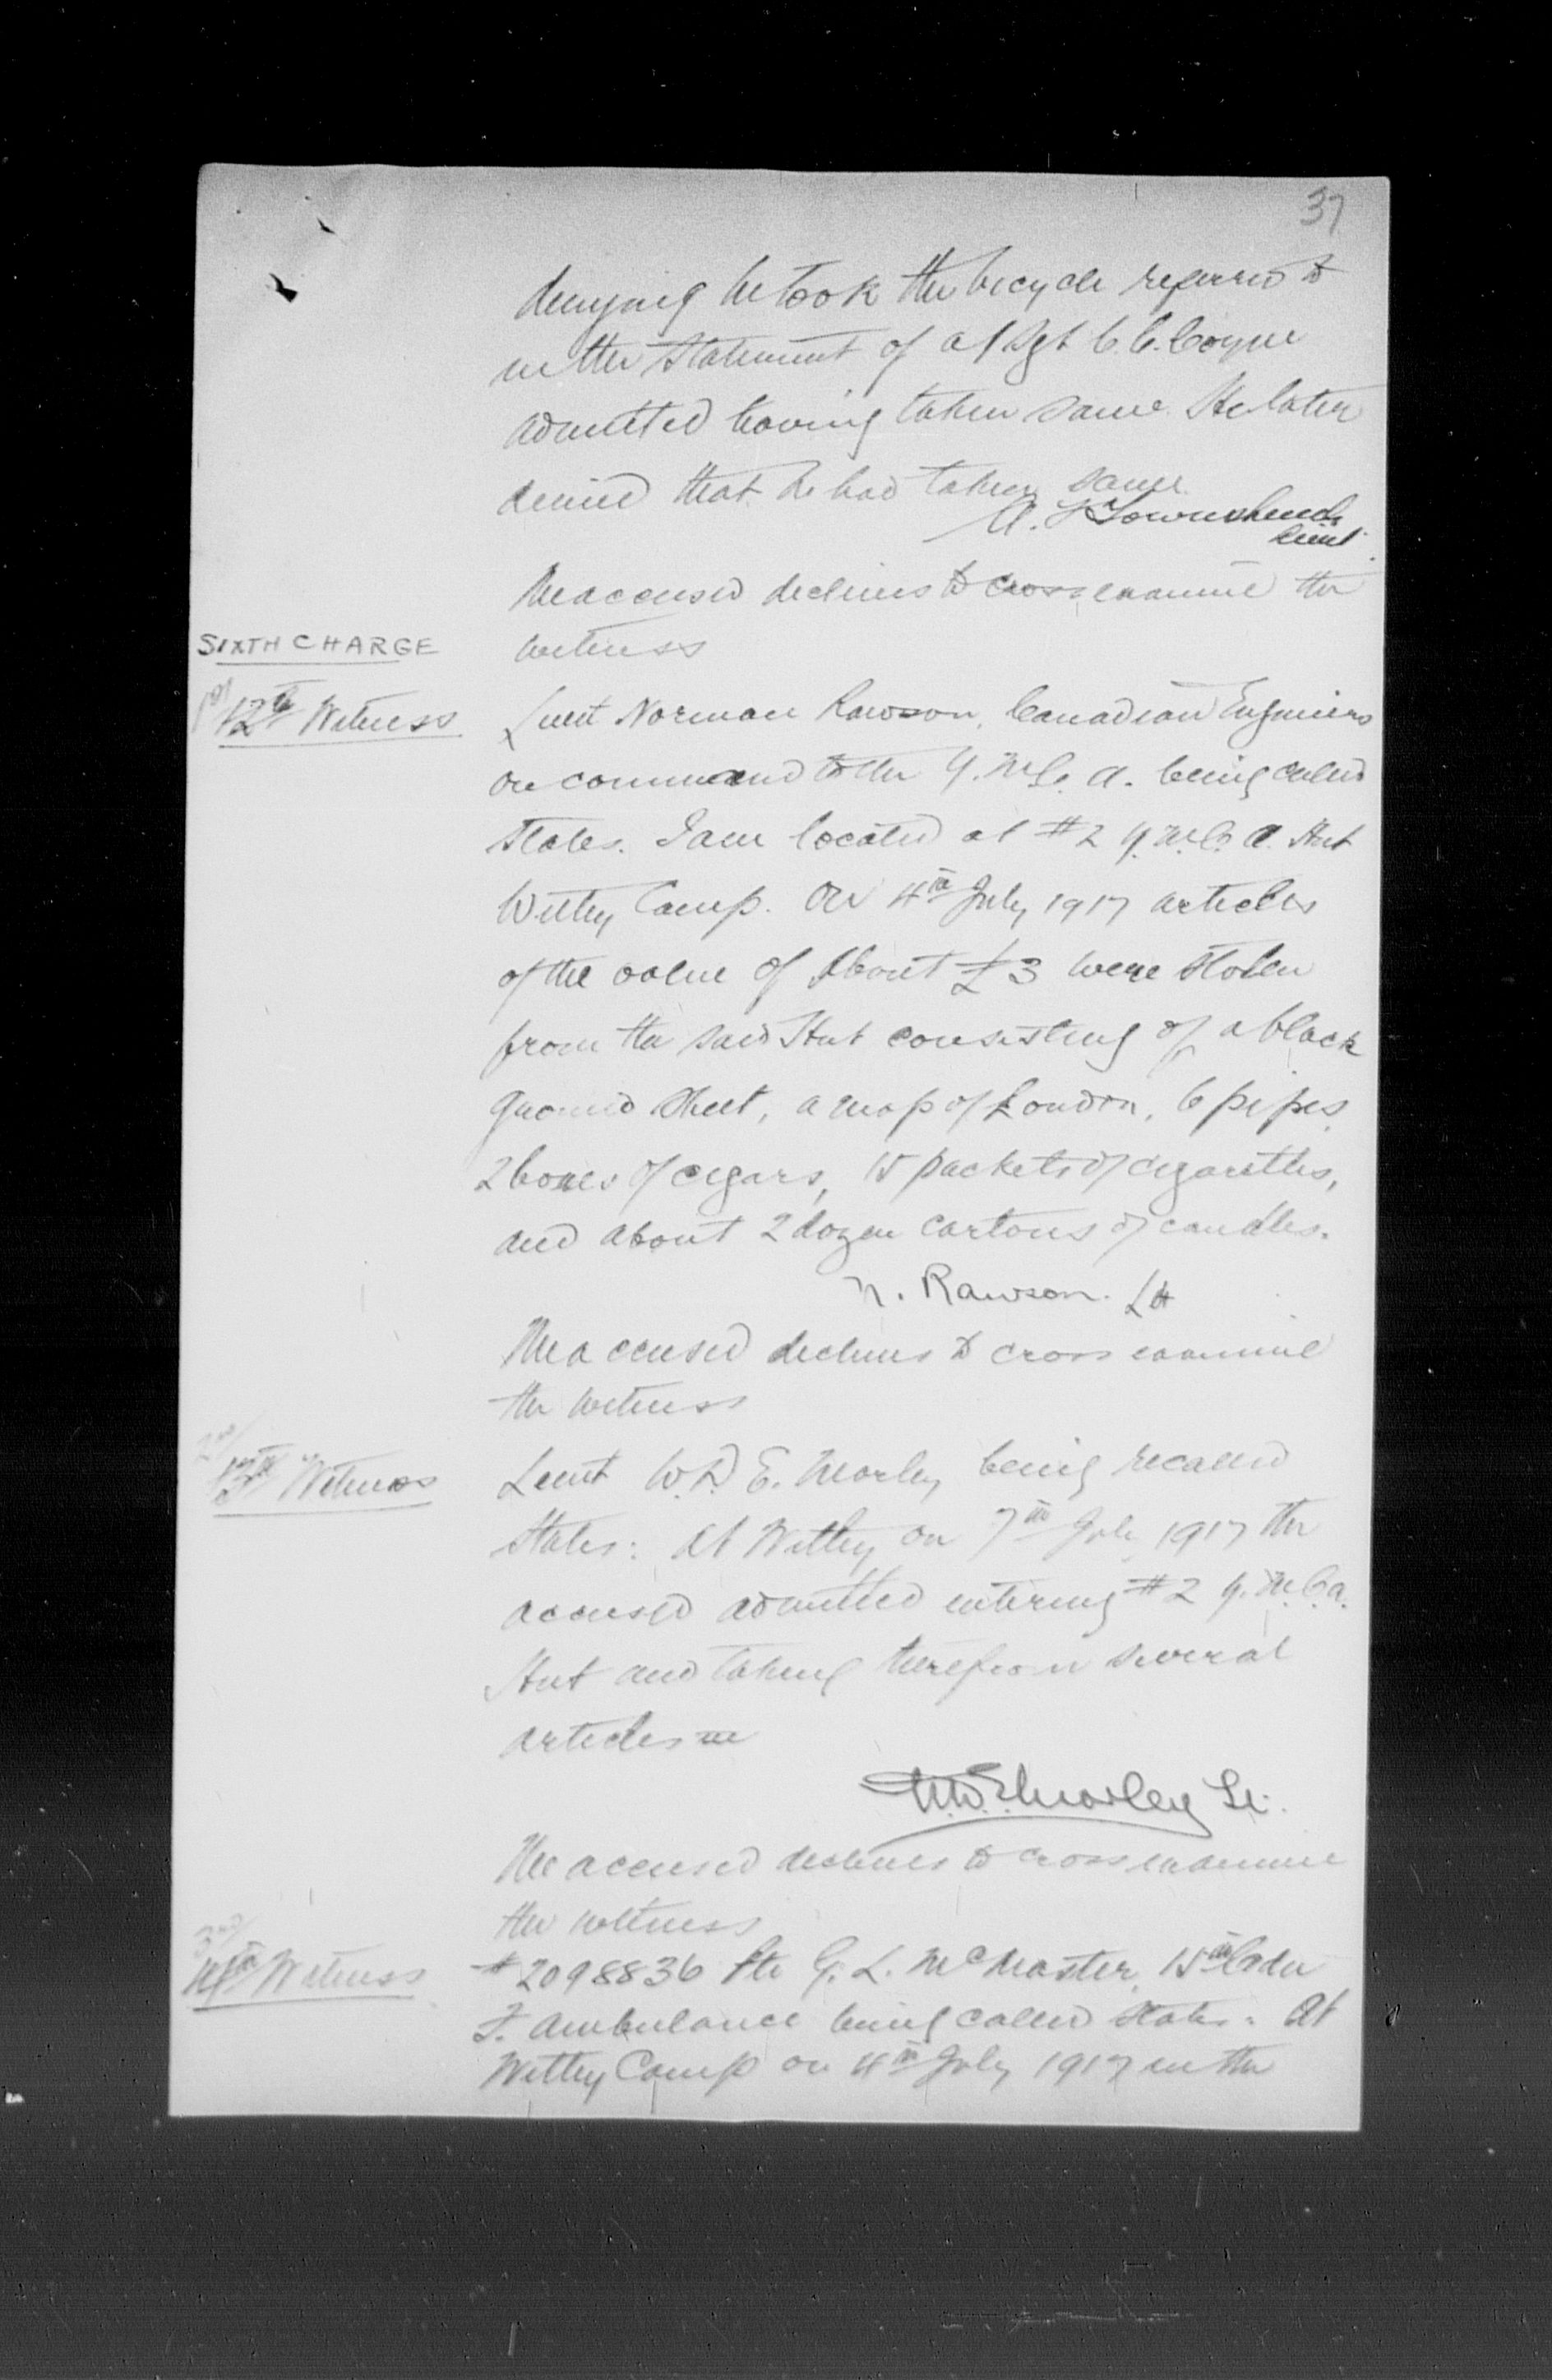 37
denying he took the bicycle referred to
in the statement of a/Sgt C.C. Coyne
admitted having taken same. He later
denied that he had taken same.
A. Townshend
Lieut.
The accused declines to cross examine the
SIXTH CHARGE
witness
1st 12th Witness
Lieut Norman Rawson, Canadian Engineers
on command to the Y.M.C.A. being called
states. I am located at #2 Y.M.C.A. Hut
Witley Camp. On 4th July, 1917 articles
of the value of about £3 were stolen
from the said Hut consisting of a black
ground sheet, a map of London, 6 pipes,
2 boxes of cigars, 15 packets of cigarettes,
and about 2 dozen cartons of candles.
N. Rawson. Lt
The accused declines to cross examine
the witness
2nd 13th Witness
Lieut W.D.E. Morley being recalled
states: At Witley on 7th July 1917 the
accused admitted entering #2 Y.M.C.A.
Hut and taking therefrom several
articles
W.D.E. Morley Lt.
The accused declines to cross examine
the witness
3rd 14th Witness
#2098836 Pte G. L. McMaster, 15th Cdn
F. Ambulance being called states: At
Witley Camp on 4th July 1917 in the